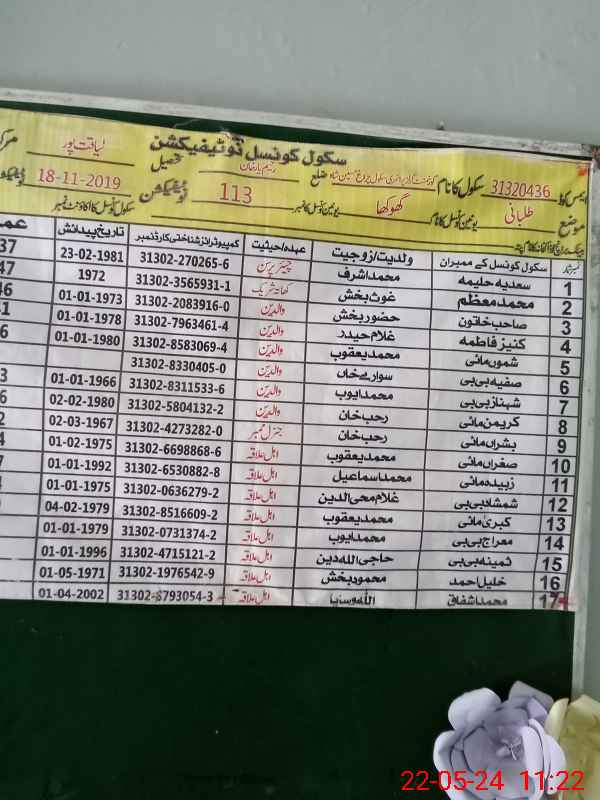 سکول کونسل نوٹیفیکیشن
ایمس کوڈ 31320436 سکول کا نام گورنمنٹ گرلز پرائمری سکول چراغ حسین شاہ ضلع رحیم یار خان تحصیل لیاقت پور مرکز
موضع طلبانی یونین کونسل کا نام گھوکھا یونین کونسل کا نمبر 113 نوٹیفیکیشن 18-11-2019
سکول کونسل کا اکاؤنٹ نمبر
نمبر شمار سکول کونسل کے ممبران ولدیت/زوجیت عہدہ/حیثیت کمپیوٹرائزشناختی کارڈنمبر تاریخ پیدائش عمر
1 سعدیہ حلیمہ محمد اشرف چیئرپرسن 31302-270265-6 23-02-1981 37
2 محمد معظم غوث بخش کھاتہ شریک 31302-3565931-1 1972 47
3 صاحب خاتون حضور بخش والدین 31302-2083916-0 01-01-1973 46
4 کنیز فاطمہ غلام حیدر والدین 31302-7963461-4 01-01-1978 41
5 شموں مائی محمد یعقوب والدین 31302-8583069-4 01-01-1980
6 صفیہ بی بی سوارے خاں والدین 31302-8330405-0
7 شہناز بی بی محمد ایوب والدین 31302-8311533-6 01-01-1966
8 کریمن مائی رحب خان والدین 31302-5804132-2 02-02-1980
9 بشراں مائی رحب خان جنرل ممبر 31302-4273282-0 02-03-1967
10 صغراں مائی محمد یعقوب اہل علاقہ 31302-6698868-6 01-02-1975
11 زبیدہ مائی محمد اسماعیل اہل علاقہ 31302-6530882-8 01-01-1992
12 شمشاد بی بی غلام محی الدین اہل علاقہ 31302-0636279-2 01-01-1975
13 کبریٰ مائی محمد یعقوب اہل علاقہ 31302-8516609-2 04-02-1979
14 معراج بی بی محمد ایوب اہل علاقہ 31302-0731374-2 01-01-1979
15 ثمینہ بی بی حاجی اللہ دین اہل علاقہ 31302-4715121-2 01-01-1996
16 خلیل احمد محمود بخش اہل علاقہ 31302-1976542-9 01-05-1971
17 محمد اشفاق اللہ وسایا اہل علاقہ 31302-8793054-3 01-04-2002
22-05-24 11:22